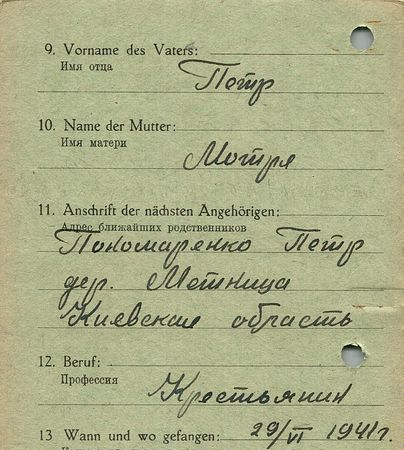 9. Vorname des Vaters:
Имя отца
Петр
10. Name der Mutter:
Имя матери
Мотря
11. Anschrift der nächsten Angehörigen:
Адрес ближайших родственников
Пономаренко Петр
дер. Метница
Киевская область
12. Beruf:
Профессия
Крестьянин
13 Wann und wo gefangen: 29/VI 1941г.